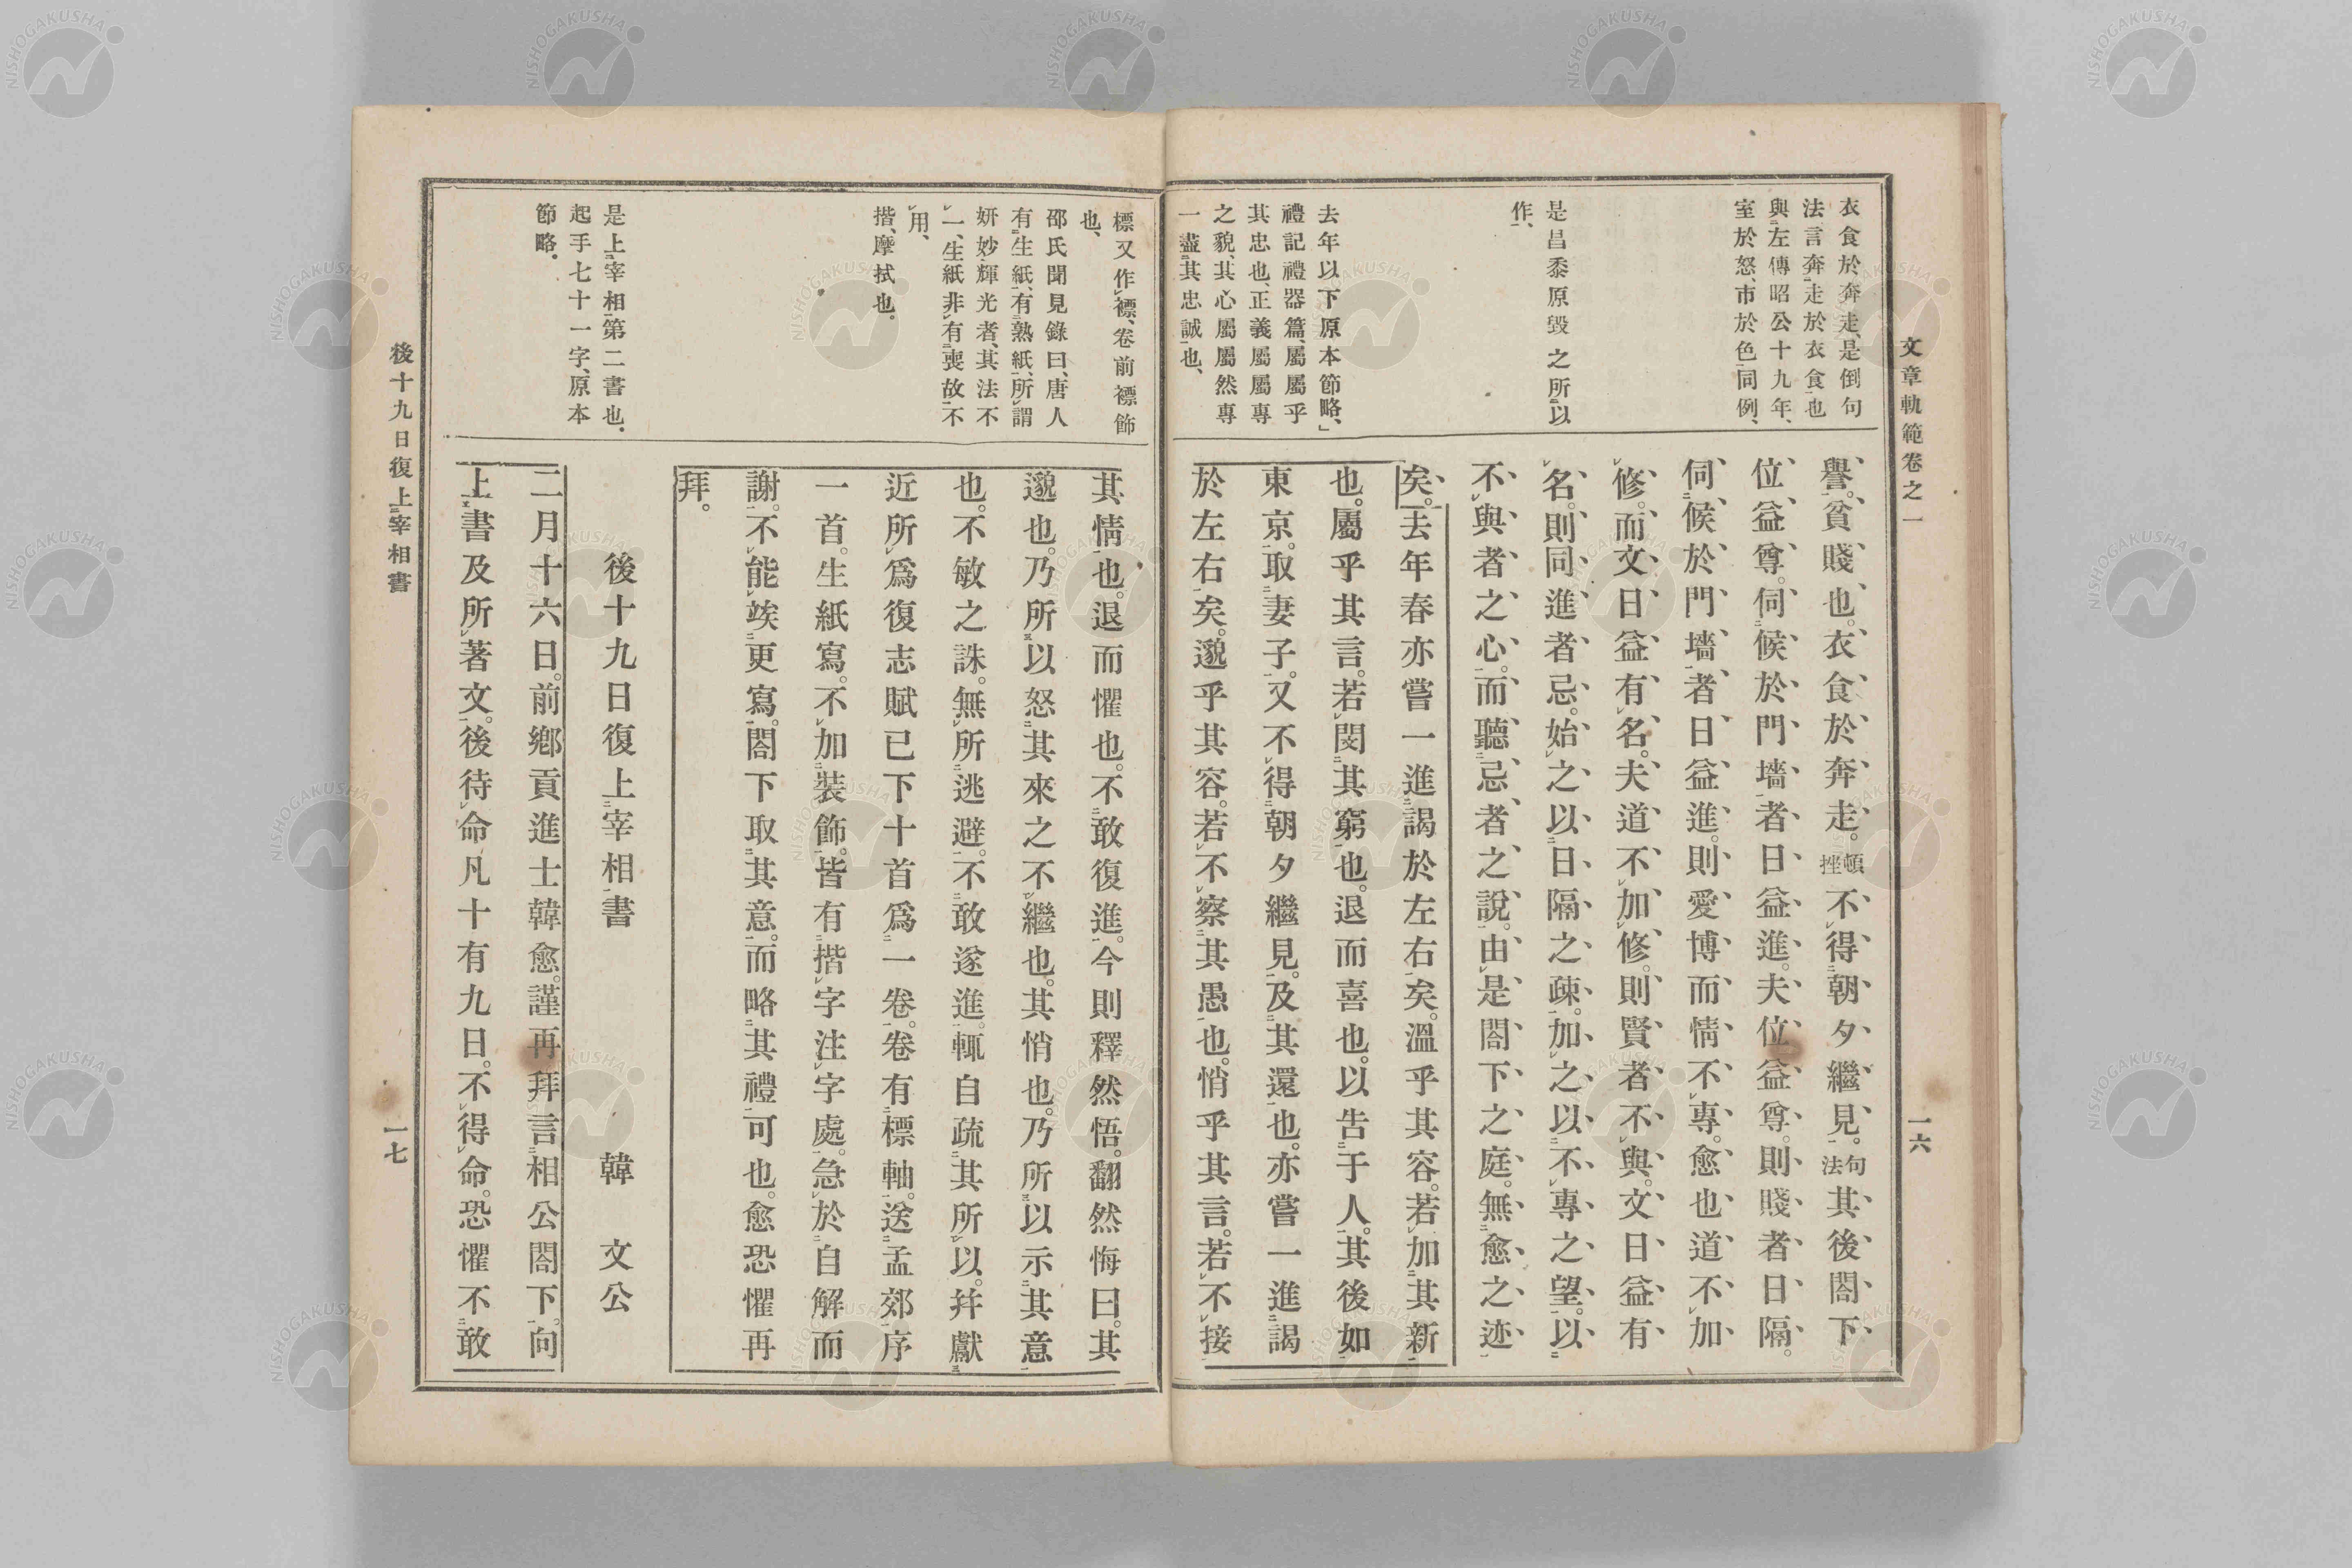 文章軌範卷之一
一六
衣食於奔走、是倒句
法言奔走於衣食也
與左傳昭公十九年、
室於怒、市於色同例、
是昌黍原毀之所以
作、
去年以下原本節略、」
禮記禮器篇、屬屬乎
其忠也、正義屬屬專
之貌、其心屬屬然專
一盡其忠誠也、
譽。貧賤也。衣食於奔走。頓挫不得朝夕繼見。句法其後閤下
位益尊。伺候於門墻者日益進。夫位益尊。則賤者日隔。
伺候於門墻者日益進。則愛博而情不專。愈也道不加
修。而文日益有名。夫道不加修。則賢者不與。文日益有
名。則同進者忌。始之以日隔之疎。加之以不專之望。以
不與者之心。而聽忌者之說。由是閤下之庭。無愈之迹
矣。去年春亦嘗一進謁於左右矣。溫乎其容。若加其新
也。屬乎其言。若閔其窮也。退而喜也。以告于人。其後如
東京。取妻子。又不得朝夕繼見。及其還也。亦嘗一進謁
於左右矣。邈乎其容。若不察其愚也。悄乎其言。若不接
標又作褾、卷前褾飾
也、
邵氏聞見錄曰、唐人
有生紙、有熟紙、所謂
妍妙輝光者、其法不
一、生紙非有喪故不
用、
揩、摩拭也。
是上宰相第二書也。
起手七十一字、原本
節略。
其情也。退而懼也。不敢復進。今則釋然悟。翻然悔曰。其
邈也。乃所以怒其來之不繼也。其悄也。乃所以示其意
也。不敏之誅。無所逃避。不敢遂進。輒自疏其所以。幷獻
近所爲復志賦已下十首爲一卷。卷有標軸。送孟郊序
一首。生紙寫。不加裝飾。皆有揩字注字處。急於自解而
謝。不能竢更寫。閤下取其意。而略其禮可也。愈恐懼再
拜。
後十九日復上宰相書　韓文公
二月十六日。前鄉貢進士韓愈。謹再拜言相公閤下。向
上書及所著文。後待命凡十有九日。不得命。恐懼不敢
後十九日復上宰相書
一七